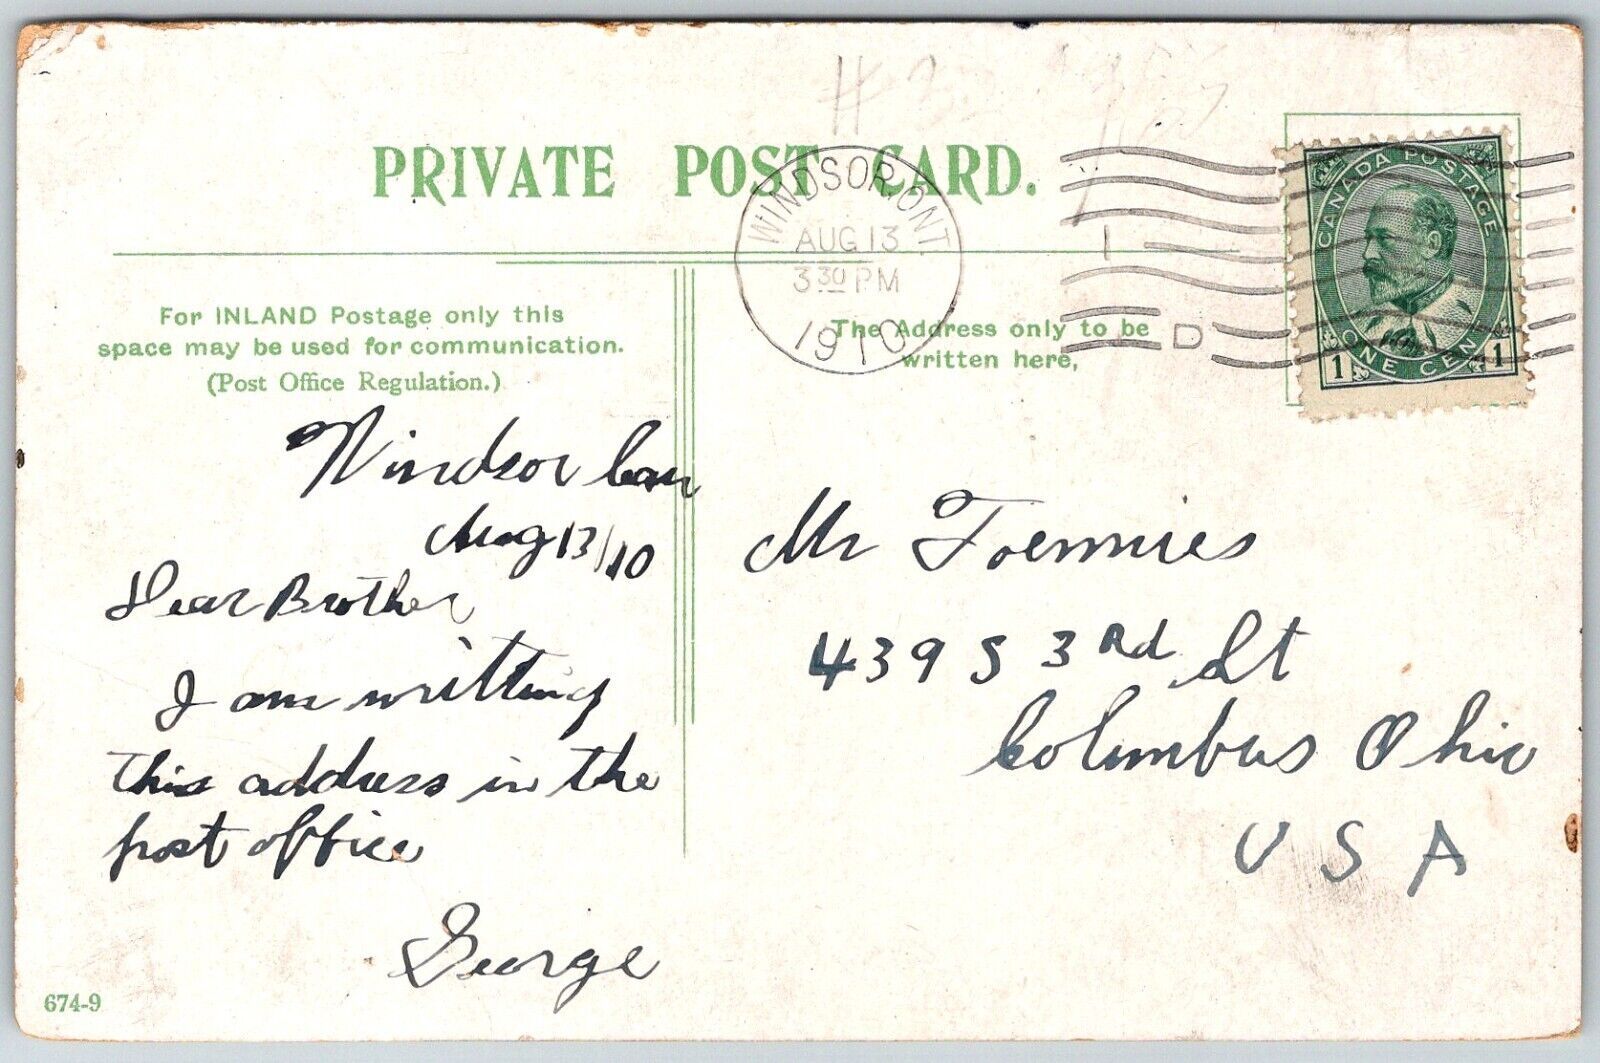 PRIVATE POST CARD.
WINDSOR, ONT.
AUG 13
3 30 PM
1910
I
D
CANADA POSTAGE
1 ONE CENT 1
For INLAND Postage only this
space may be used for communication.
(Post Office Regulation.)
The Address only to be
written here,
Windsor Can
Aug 13/10
Dear Brother
I am writting
this address in the
post office
George
Mr Toennies
439 S 3rd St
Columbus Ohio
U S A
674-9